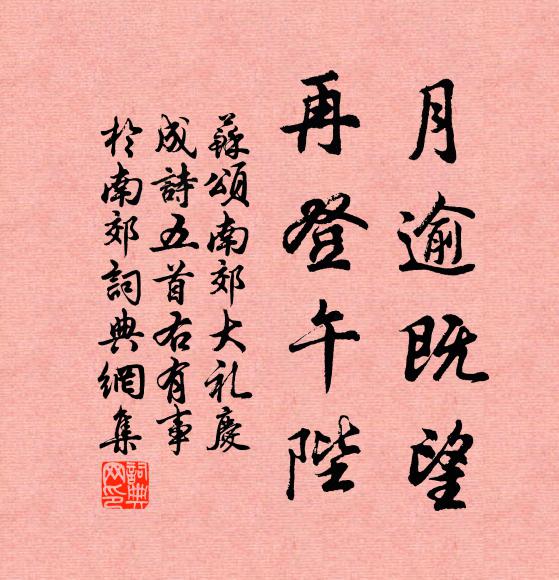 月逾既望
再登午陛
蘇頌南郊大礼慶
成詩五首右有事
於南郊詞典網集
詞典
网印